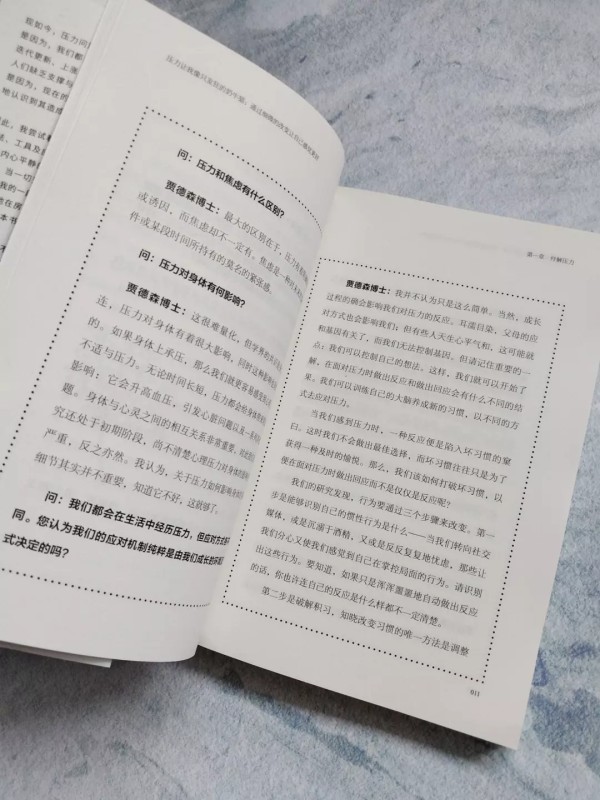 现如今，压力问
是因为，我们都
迭代更新、上涨
人们缺乏支撑与
是因为，现在的
地认识到其造成
此，我尝试
工具及
内心平静
当一切
我的一
地在房
本书
压力让我像只发狂的
问：压力和焦虑有什么区别？
贾德森博士：最大的区别在于，压力有着
或诱因，而焦虑却不一定有。焦虑是一种
件或某段时间所持有的莫名的紧张感。
问：压力对身体有何影响？
贾德森博士：这很难量化，但学界的共识
连，压力对身体有着很大影响，同时这种影响
的。如果身体上术压，那么我们就更容易感受到
不适与压力。无论时间长短，压力都会给身体带
影响：它会升高血压，引发心脏问题以及一系列
题。身体与心灵之间的相互关系非常重要，但此
究还处于初期阶段，尚不清楚心理压力对身体
严重，反之亦然。我认为，关于压力如何影响身
细节其实并不重要，知道它不好，这就够了。
问：我们都会在生活中经历压力，但应对方式
同。您认为我们的应对机制纯粹是由我们成长的环
式决定的吗？
第一章·待解压力
贾德森博士：我并不认为只是这么简单。当然，成长
过程的确会影响我们对压力的反应。耳濡目染，父母的应
对方式也会影响我们；但有些人天生心平气和，这可能就
和基因有关了，而我们无法控制基因。但请记住重要的一
点：我们可以控制自己的想法。这样，我们就可以开始了
解，在面对压力时做出反应和做出回应会有什么不同的结
果。我们可以训练自己的大脑养成新的习惯，以不同的方
式去应对压力。
当我们感到压力时，一种反应便是陷入坏习惯的窠
臼。这时我们不会做出最佳选择，而坏习惯往往只是为了
获得一种及时的愉悦。那么，我们该如何打破坏习惯，以
便在面对压力时做出回应而不是仅仅是反应呢？
我们的研究发现，行为要通过三个步骤来改变。第一
步是能够识别自己的惯性行为是什么——当我们转向社交
媒体，或是沉溺于酒精，又或是反反复复地忧虑，那些让
我们分心又使我们感觉到自己在掌控局面的行为。请识别
出这些行为。要知道，如果只是浑浑噩噩地自动做出反应
的话，你也许连自己的反应是什么样都不一定清楚。
第二步是破解积习，知晓改变习惯的唯一方法是调整
011